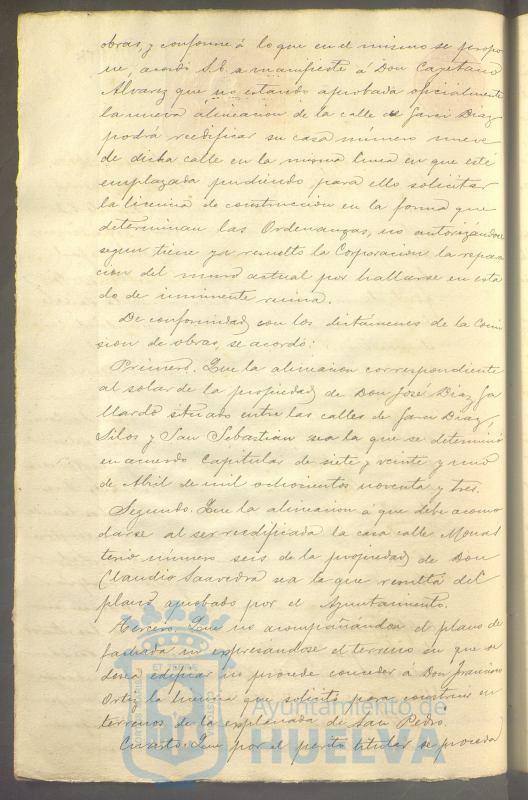 obras, y conforme á lo que en el mismo se propo
ne, acordó S.E. se manifieste á Don Cayetano
Alvarez que no estando aprobada oficialmente
la nueva alineacion de la calle de Garci Diaz
podrá reedificar su casa número nueve
de dicha calle en la misma linea en que está
emplazada pudiendo para ello solicitar
la licencia de construccion en la forma que
determinan las Ordenanzas, no autorizandose
segun tiene ya resuelto la Corporacion la repara
cion del muro actual por hallarse en esta
do de inminente ruina.
De conformidad con los dictámenes de la Comi
sion de obras, se acordó:
Primero. Que la alineacion correspondiente
al solar de la propiedad de Don José Diaz Ga
llardo situado entre las calles de Garci Diaz,
Silos y San Sebastian sea la que se determinó
en acuerdo Capitular de siete y veinte y uno
de Abril de mil ochocientos noventa y tres.
Segundo. Que la alineacion á que debe acomo
darse al ser reedificada la casa calle Monas
terio número seis de la propiedad de Don
Claudio Saavedra sea la que resulta del
plano aprobado por el Ayuntamiento.
Tercero. Que no acompañándose el plano de
fachada ni expresándose el terreno en que se
desea edificar no procede conceder á Don Francisco
Ortiz la licencia que solicita para construir en
terrenos de la explanada de San Pedro.
Cuarto. Que por el perito titular se proceda
Ayuntamiento de
HUELVA